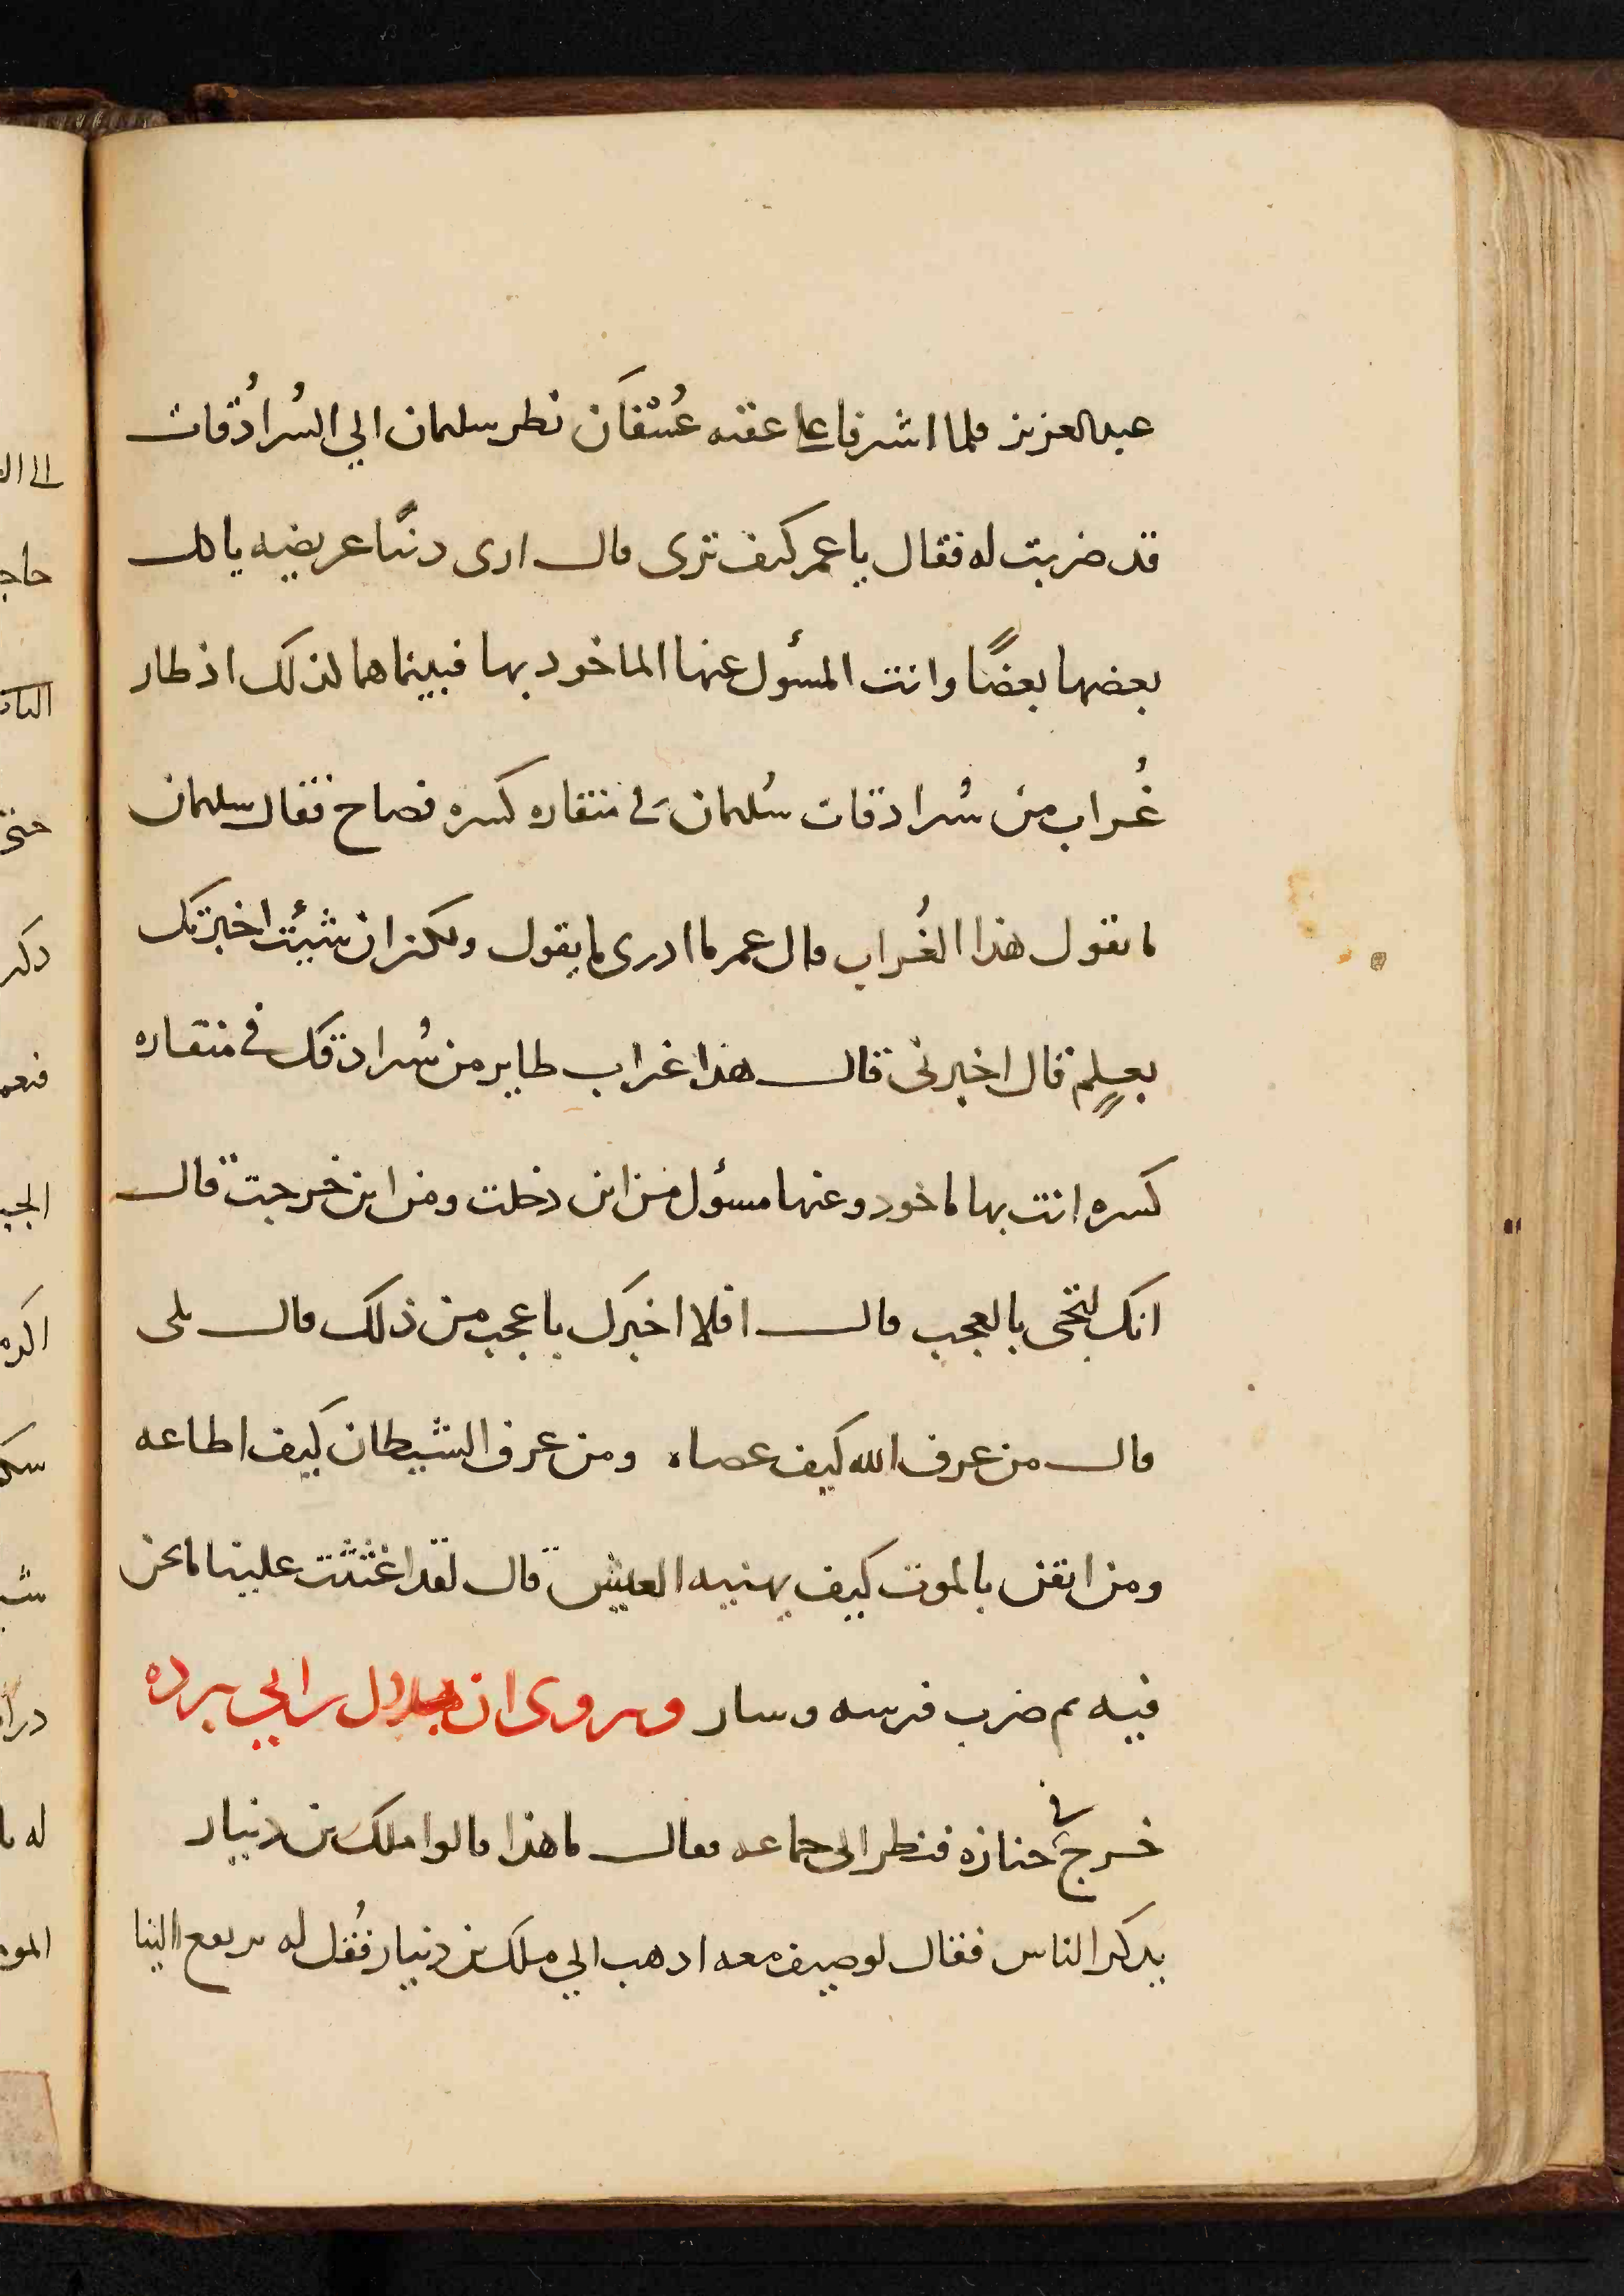 عبد العزيز فلما اشرفا على عقبه عُسْفَان نظر سليمان الي السُرادُقات
قد ضربت له فقال يا عمر كيف ترى قال ارى دنيًا عريضه ياكل
بعضها بعضًا وانت المسؤل عنها الماخود بها فبينما هما لذلك اذ طار
غُراب من سُرادقات سُليمان في منقاره كسره فصاح فقال سليمان
ما يقول هذا الغُراب قال عمر ما ادرى ما يقول ولكن ان شيئت اخبرتك
بعلمٍ قال اخبرنى قال هذا غراب طاير من سُرادقك في منقاره
كسره انت بها ماخود وعنها مسؤل من اين دخلت ومن اين خرجت قال
انك لتجى بالعجب قال افلا اخبرك باعجب من ذلك قال بلى
قال من عرف الله كيف عصاه ومن عرف الشيطان كيف اطاعه
ومن ايقن بالموت كيف يهنيه العيش قال لقد اغثثت علينا ما نحن
فيه ثم ضرب فرسه وسار وىروى ان بلال بن ابي برده
خرج في جنازه فنظر الى جماعه فقال ما هذا قالوا ملك بن دينار
يدكر الناس فقال لوصيف معه ادهب الي ملك بن دينار فقُل له يرتفع الينا